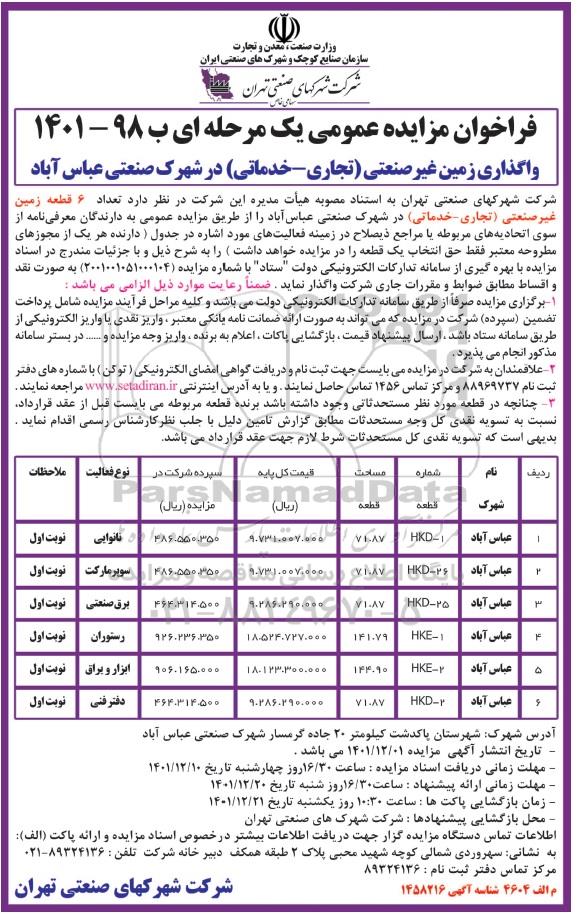 وزارت صنعت، معدن و تجارت
سازمان صنایع کوچک و شهرک های صنعتی ایران
شرکت شهرکهای صنعتی تهران
سهامی خاص
فراخوان مزایده عمومی یک مرحله ای ب ۹۸ – ۱۴۰۱
واگذاری زمین غیرصنعتی (تجاری-خدماتی) در شهرک صنعتی عباس آباد
شرکت شهرکهای صنعتی تهران به استناد مصوبه هیأت مدیره این شرکت در نظر دارد تعداد ۶ قطعه زمین
غیرصنعتی (تجاری-خدماتی) در شهرک صنعتی عباس‌آباد را از طریق مزایده عمومی به دارندگان معرفی‌نامه از
سوی اتحادیه‌های مربوطه یا مراجع ذیصلاح در زمینه فعالیت‌های مورد اشاره در جدول ( دارنده هر یک از مجوزهای
مطروحه معتبر فقط حق انتخاب یک قطعه را در مزایده خواهد داشت ) را به شرح ذیل و با جزئیات مندرج در اسناد
مزایده با بهره گیری از سامانه تدارکات الکترونیکی دولت "ستاد" با شماره مزایده (۲۰۰۱۰۰۱۰۵۱۰۰۰۱۰۴) به صورت نقد
و اقساط مطابق ضوابط و مقررات جاری شرکت واگذار نماید . ضمناً رعایت موارد ذیل الزامی می باشد :
۱-برگزاری مزایده صرفاً از طریق سامانه تدارکات الکترونیکی دولت می باشد و کلیه مراحل فرآیند مزایده شامل پرداخت
تضمین (سپرده) شرکت در مزایده که می تواند به صورت ارائه ضمانت نامه بانکی معتبر ، واریز نقدی یا واریز الکترونیکی از
طریق سامانه ستاد باشد ، ارسال پیشنهاد قیمت ، بازگشایی پاکات ، اعلام به برنده ، واریز وجه مزایده و ...... در بستر سامانه
مذکور انجام می پذیرد .
۲-علاقمندان به شرکت در مزایده می بایست جهت ثبت نام و دریافت گواهی امضای الکترونیکی ( توکن ) با شماره های دفتر
ثبت نام ۸۸۹۶۹۷۳۷ و مرکز تماس ۱۴۵۶ تماس حاصل نمایند . و یا به آدرس اینترنتی www.setadiran.ir مراجعه نمایند .
۳- چنانچه در قطعه مورد نظر مستحدثاتی وجود داشته باشد برنده قطعه مربوطه می بایست قبل از عقد قرارداد،
نسبت به تسویه نقدی کل وجه مستحدثات مطابق گزارش تامین دلیل یا جلب نظر کارشناس رسمی اقدام نماید .
بدیهی است که تسویه نقدی کل مستحدثات شرط لازم جهت عقد قرارداد می باشد.
ردیف نام شهرک شماره قطعه مساحت قطعه قیمت کل پایه (ریال) سپرده شرکت در مزایده (ریال) نوع فعالیت ملاحظات
۱ عباس آباد HKD-۱ ۷۱.۸۷ ۹.۷۳۱.۰۰۷.۰۰۰ ۴۸۶.۵۵۰.۳۵۰ نانوایی نوبت اول
۲ عباس آباد HKD-۲۶ ۷۱.۸۷ ۹.۷۳۱.۰۰۷.۰۰۰ ۴۸۶.۵۵۰.۳۵۰ سوپرمارکت نوبت اول
۳ عباس آباد HKD-۲۵ ۷۱.۸۷ ۹.۲۸۶.۲۹۰.۰۰۰ ۴۶۴.۳۱۴.۵۰۰ برق صنعتی نوبت اول
۴ عباس آباد HKE-۱ ۱۴۱.۷۹ ۱۸.۵۲۴.۷۲۷.۰۰۰ ۹۲۶.۲۳۶.۳۵۰ رستوران نوبت اول
۵ عباس آباد HKE-۲ ۱۴۴.۹۰ ۱۸.۱۲۳.۳۰۰.۰۰۰ ۹۰۶.۱۶۵.۰۰۰ ابزار و یراق نوبت اول
۶ عباس آباد HKD-۲ ۷۱.۸۷ ۹.۲۸۶.۲۹۰.۰۰۰ ۴۶۴.۳۱۴.۵۰۰ دفتر فنی نوبت اول
ParsNamadData
پایگاه اطلاع رسانی مناقصه و مزایده
۰۲۱-۸۸۳۴۹۶۷۰-۵
آدرس شهرک: شهرستان پاکدشت کیلومتر ۲۰ جاده گرمسار شهرک صنعتی عباس آباد
- تاریخ انتشار آگهی مزایده ۱۴۰۱/۱۲/۰۱ می باشد .
- مهلت زمانی دریافت اسناد مزایده : ساعت ۱۶/۳۰ روز چهارشنبه تاریخ ۱۴۰۱/۱۲/۱۰
- مهلت زمانی ارائه پیشنهاد : ساعت ۱۶/۳۰ روز شنبه تاریخ ۱۴۰۱/۱۲/۲۰
- زمان بازگشایی پاکت ها : ساعت ۱۰:۳۰ روز یکشنبه تاریخ ۱۴۰۱/۱۲/۲۱
- محل بازگشایی پیشنهادها : شرکت شهرک های صنعتی تهران
اطلاعات تماس دستگاه مزایده گزار جهت دریافت اطلاعات بیشتر درخصوص اسناد مزایده و ارائه پاکت (الف):
به نشانی: سهروردی شمالی کوچه شهید محبی پلاک ۲ طبقه همکف دبیر خانه شرکت تلفن : ۸۹۳۲۴۱۳۶-۰۲۱
مرکز تماس دفتر ثبت نام : ۸۹۳۲۴۱۳۶
م الف ۴۶۰۴ شناسه آگهی ۱۴۵۸۲۱۶
شرکت شهرکهای صنعتی تهران